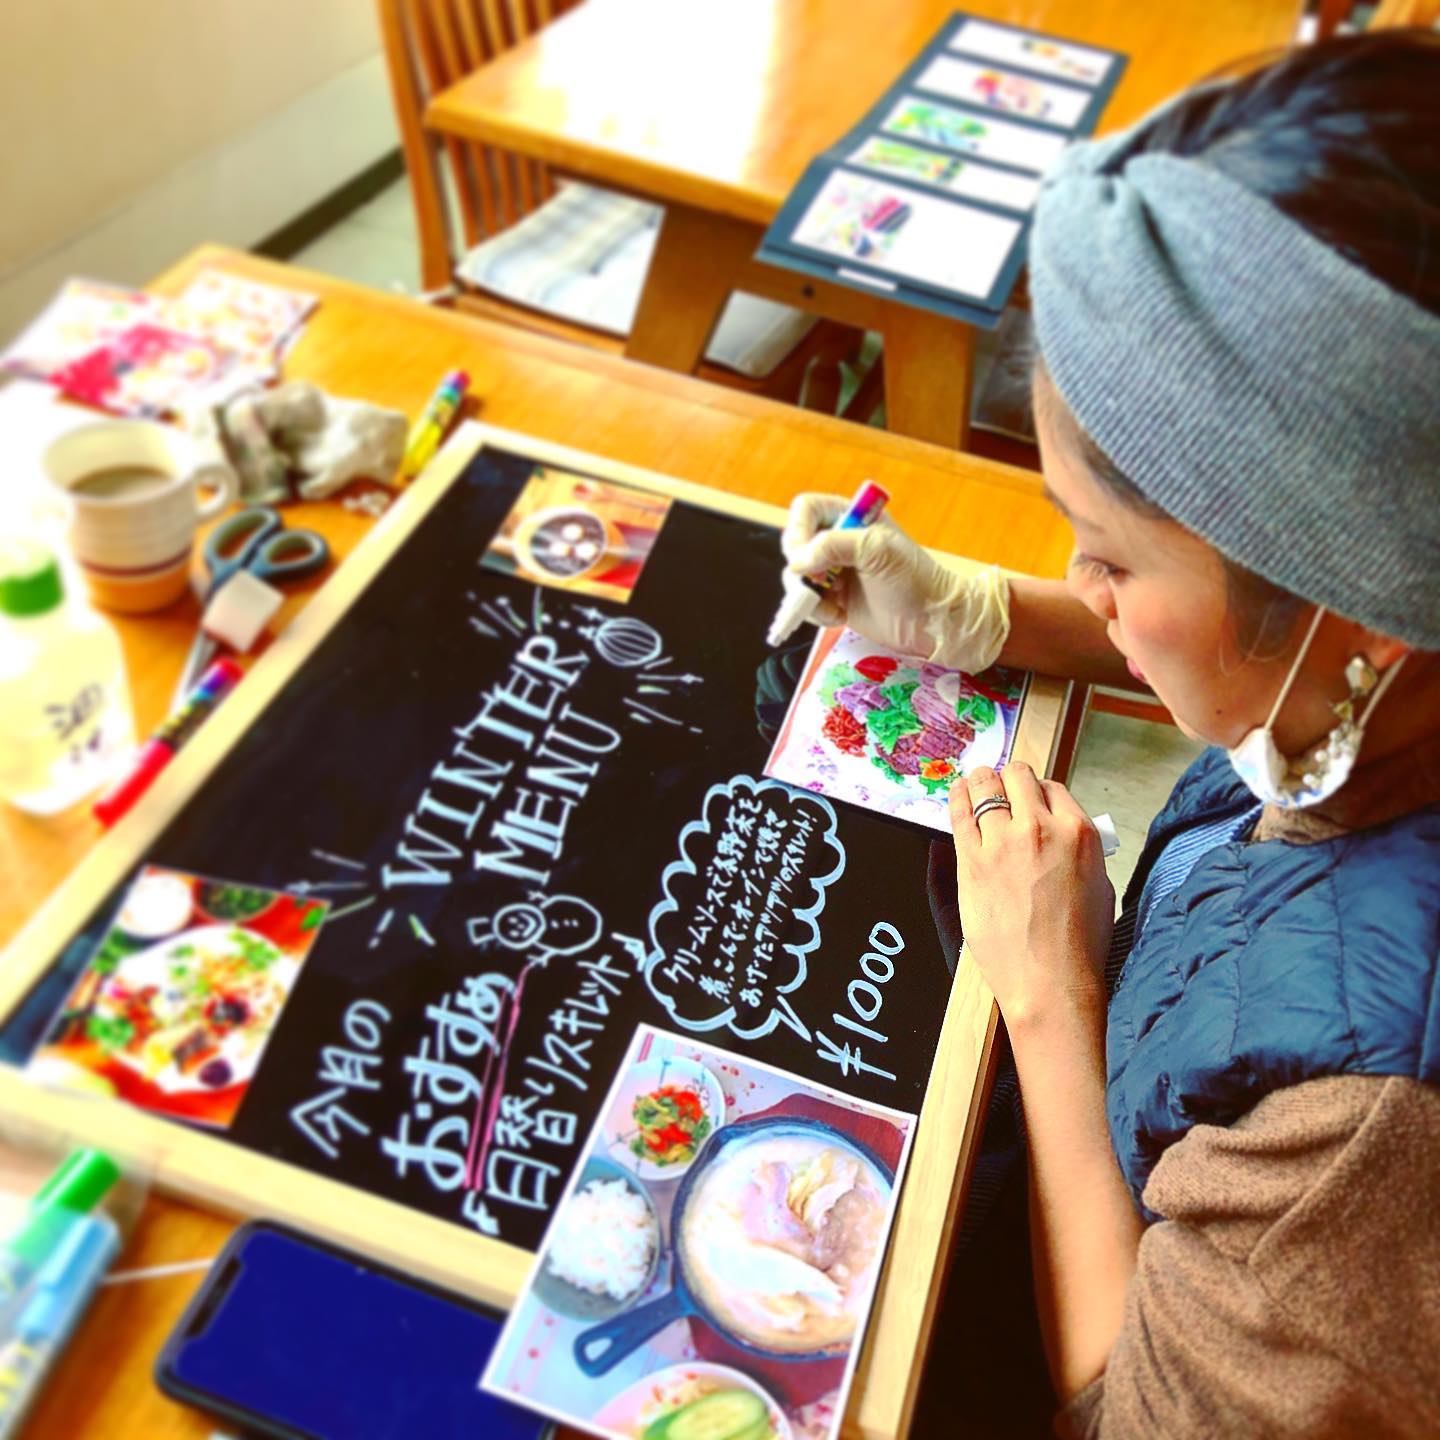 WINTER
MENU
今月の
おすすめ
日替りスキレット
クリームソースで冬野菜を
煮こんで、オーブンで焼き
あげたアツアツのスキレット!
¥1000